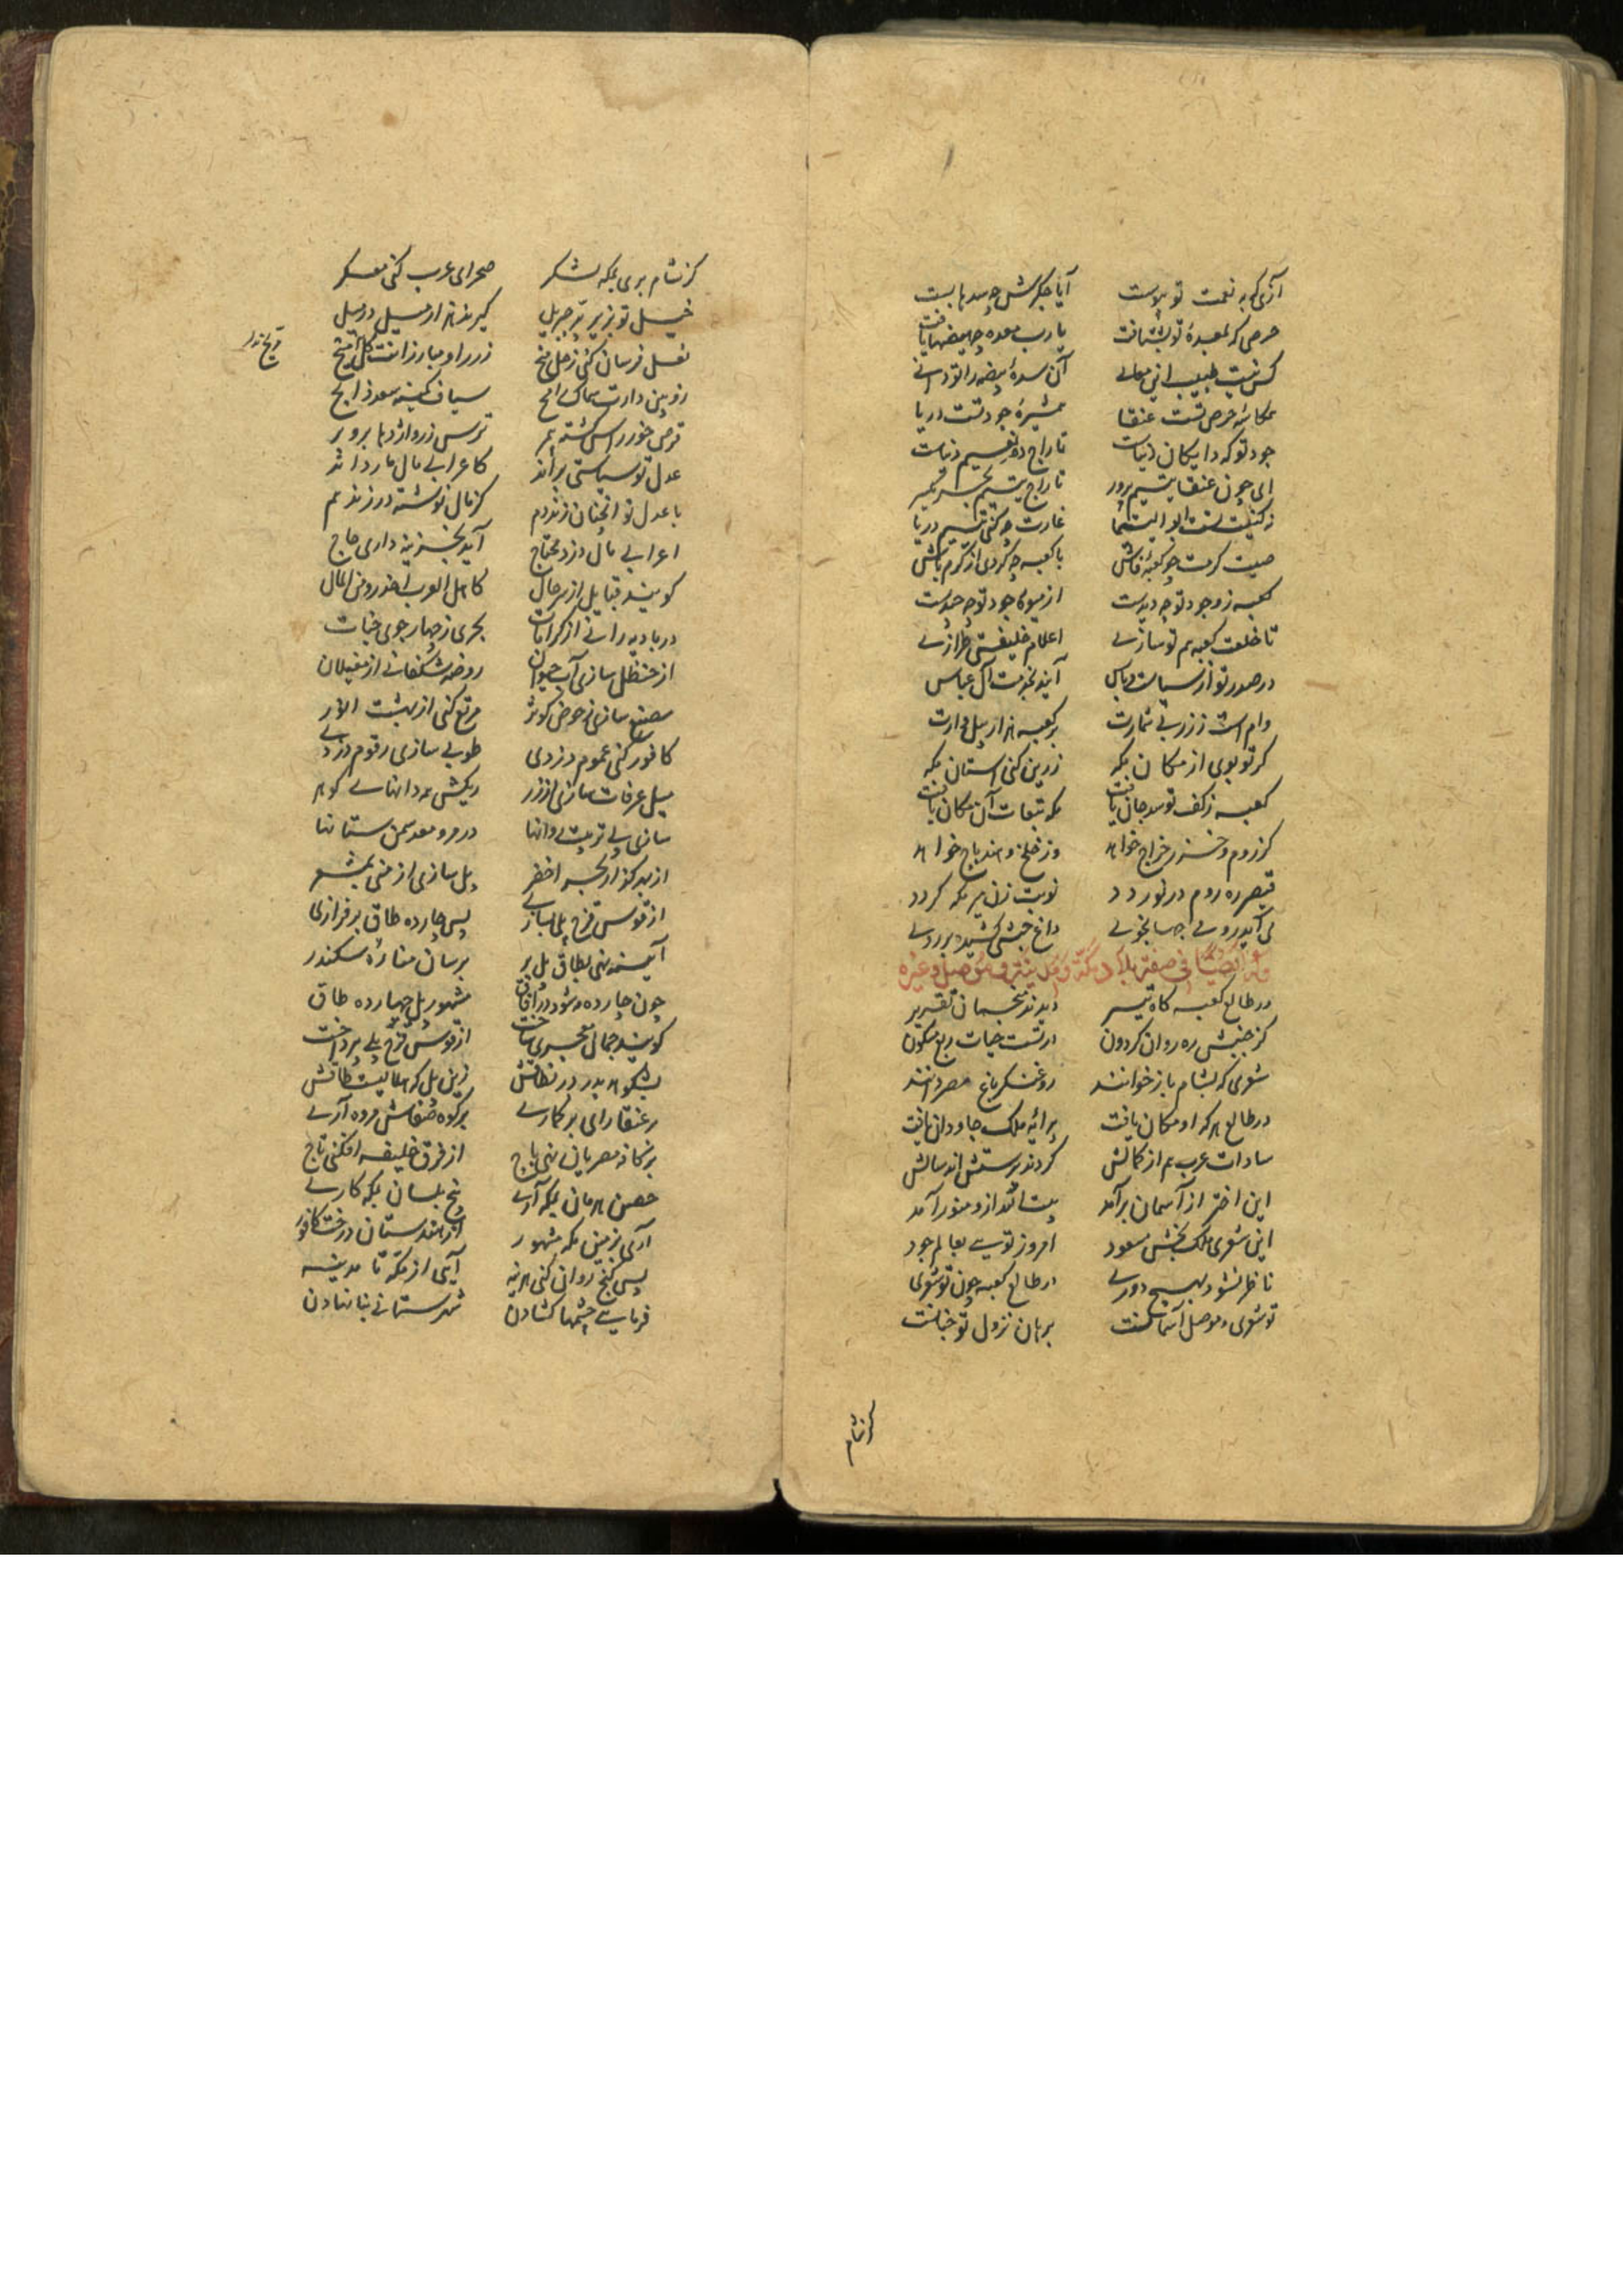 آزی که به نعمت تو پیوست آیا جگرش چه سدها بست
حرص که بمعدهٔ تو بشتافت یارب معده چه هیضها یافت
کس نیست طبیب انی معانی آن سدهٔ هیضه را تو دانی
همکاسهٔ حرص تست عنقا همشیرهٔ جود تست دریا
جود تو که دایگان دنیاست تاراج ده نعیم دنیاست
ای چون عنقا یتیم پرور تاراج یتیم بحر
غارت چه کنی یتیم دریا
صیت کرمت چو کعبه فاش با کعبه چه کردی از کرم باش
کعبه ز وجود تو چه دیدست از میوهٔ جود تو چه چیدست
تا خلعت کعبه هم تو سازی اعلام خلیفتی طرازی
در صدر تو از سیاست و باس آیند بخدمت آل عباس
وام است ز زر بی شمارت بر کعبه هزار پیل وارت
گر تو بوی از مکان مکه زرین کنی آستان مکه
کعبه ز کف تو سد جان یافت مکه تبعات آن مکان یافت
کز روم و خزر خراج خواهد وز خلخ و هند باج خواهد
قیصر ره روم درنوردد نوبت زن میر مکه گردد
داغ حبشی کشیده بر روی
وله ایضا فی صفة بلاد مکة و مدینة و موصل و غیره
در طالع کعبه گاه تیسیر دیدند منجمان تقریر
کز جنبش ره روان گردون در تست حیات ربع مسکون
شعری که بشام باز خوانند روغنگر باغ مصر دانند
در طالع هر که او مکان یافت پیرایهٔ ملک جاودان یافت
سادات عرب هم از کمالش کردند پرستش اند سالش
این اختر از آسمان برآمد بیت الله ازو منور آمد
این شعری ملک بخش مسعود امروز توسی بعالم جود
ناظر نشود بهیچ دوری در طالع کعبه چون تو شعری
تو شعری و موصل آسمانست برهان نزول تو چنانست
کز شام
کز شام بری بمکه لشکر صحرای عرب کنی معسکر
خیل تو بزیر پر جبریل گیرند هزار میل در میل
نعل فرسان کنی ز حل
مریخ
زوبین دارت سماک رامح سیاف کمینه سعد ذابح
قرص خور را سر گشته بر ترس زر و اژدها برو بر
عدل تو سیاستی براند کاعرابی مال مار داند
با عدل تو آنچنان زند دم کز مال نوشته در زند هم
اعرابی مال دزد محتاج آید بخزینه داری حاج
گویند قبایل از سر حال کاهل العرب احذروا من المال
در بادیه رانی از کرامات بحری ز چهار جوی جنات
از حنظل سازی آب حیوان روضه شکفانی از مغیلان
مصنع سازی ز حوض کوثر مرتع کنی از بهشت انور
کافور کنی سموم دزدی طوبی سازی ز قوم دزدی
میل عرفات سازی از زر ریگش همه دانهای گوهر
سازی پی تربیت روانها در مرو معد سمن ستانها
از بهر گذار بحر اخضر پل سازی از منی بمشعر
از قوس قزح پلی بسازی پس چارده طاق برفرازی
آیینه نهی بطاق پل بر برسان منارهٔ سکندر
چون چارده شود در آفاق مشهور پل چهارده طاق
گویند جمال معجزی ساخت از قوس قزح پلی بپرداخت
بشکوهد بدر در نطاقش زین پل که هلالیست طاقش
بر کوه صفاش مروه آری
بر خانه مصریان نهی باج از فرق خلیفه افکنی تاج
حصن هرمان بمکه آری بیخ بلسان بمکه کاری
آری بزمین مکه مشهور از هندستان درخت کافور
پس گنج روان کنی هزینه آیی از مکه تا مدینه
فرمایی چشمها گشادن شهرستانی بنا نهادن